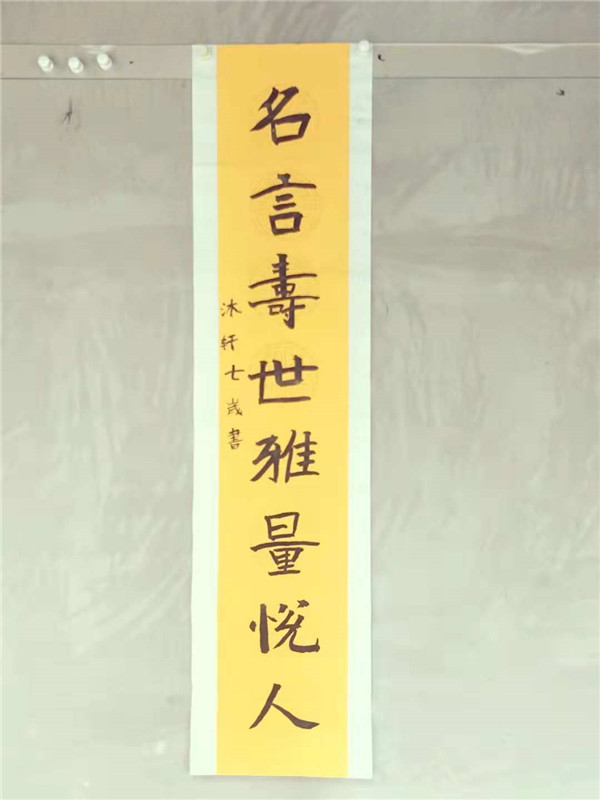 名言壽世雅量悦人
沐轩七岁書